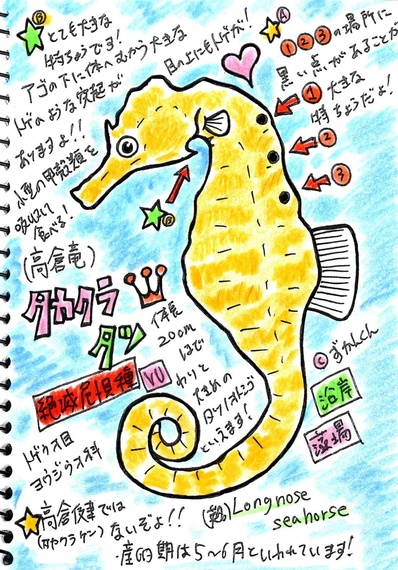 B
とても大きな
特ちょうです！
アゴの下に体へむかう大きな
トゲのような突起が
ありますよ！！
小型の甲殻類を
吸いこんで
食べる！
目の上にもトゲが！
A
①②③の場所に
黒い点があることが
大きな
特ちょうだよ！
①
②
③
B
(高倉竜)
タカクラ
タツ
絶滅危惧種 VU
トゲウオ目
ヨウジウオ科
体長
20cm
ほどで
わりと
大きめの
タツノオトシゴ
といえます！
© ずかんくん
沿岸
藻場
高倉健では
(タカクラケン)
ないぞよ！！
(英名) Longnose
seahorse
・産卵期は5〜6月といわれています！